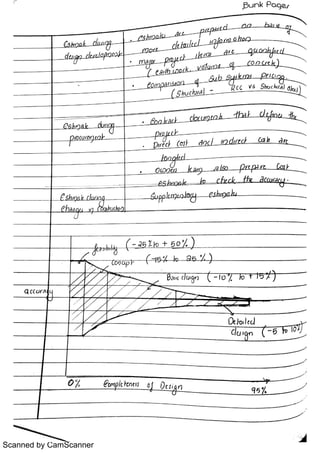 Bunk Pages
Estimate during design development
• estimate are prepared on base of
more detailed information
• major project items are quantified
(earthwork, volume of concrete)
• Comparison of Sub System pricing
(Structural - RCC vs Structural steel)
Estimate during procurement
• Contract documents that defines the
project
• Direct cost and indirect cost are
• owner team also prepare cost
estimate to check the accuracy
Estimate during
Supplementary estimate
change in construction
feasibility (-25% to + 50%)
concept (-15% to 25%)
Basic design (-10% to +15%)
accuracy
Detailed
design (-5 to 10%)
0% Completeness of Design 95%
Scanned by CamScanner